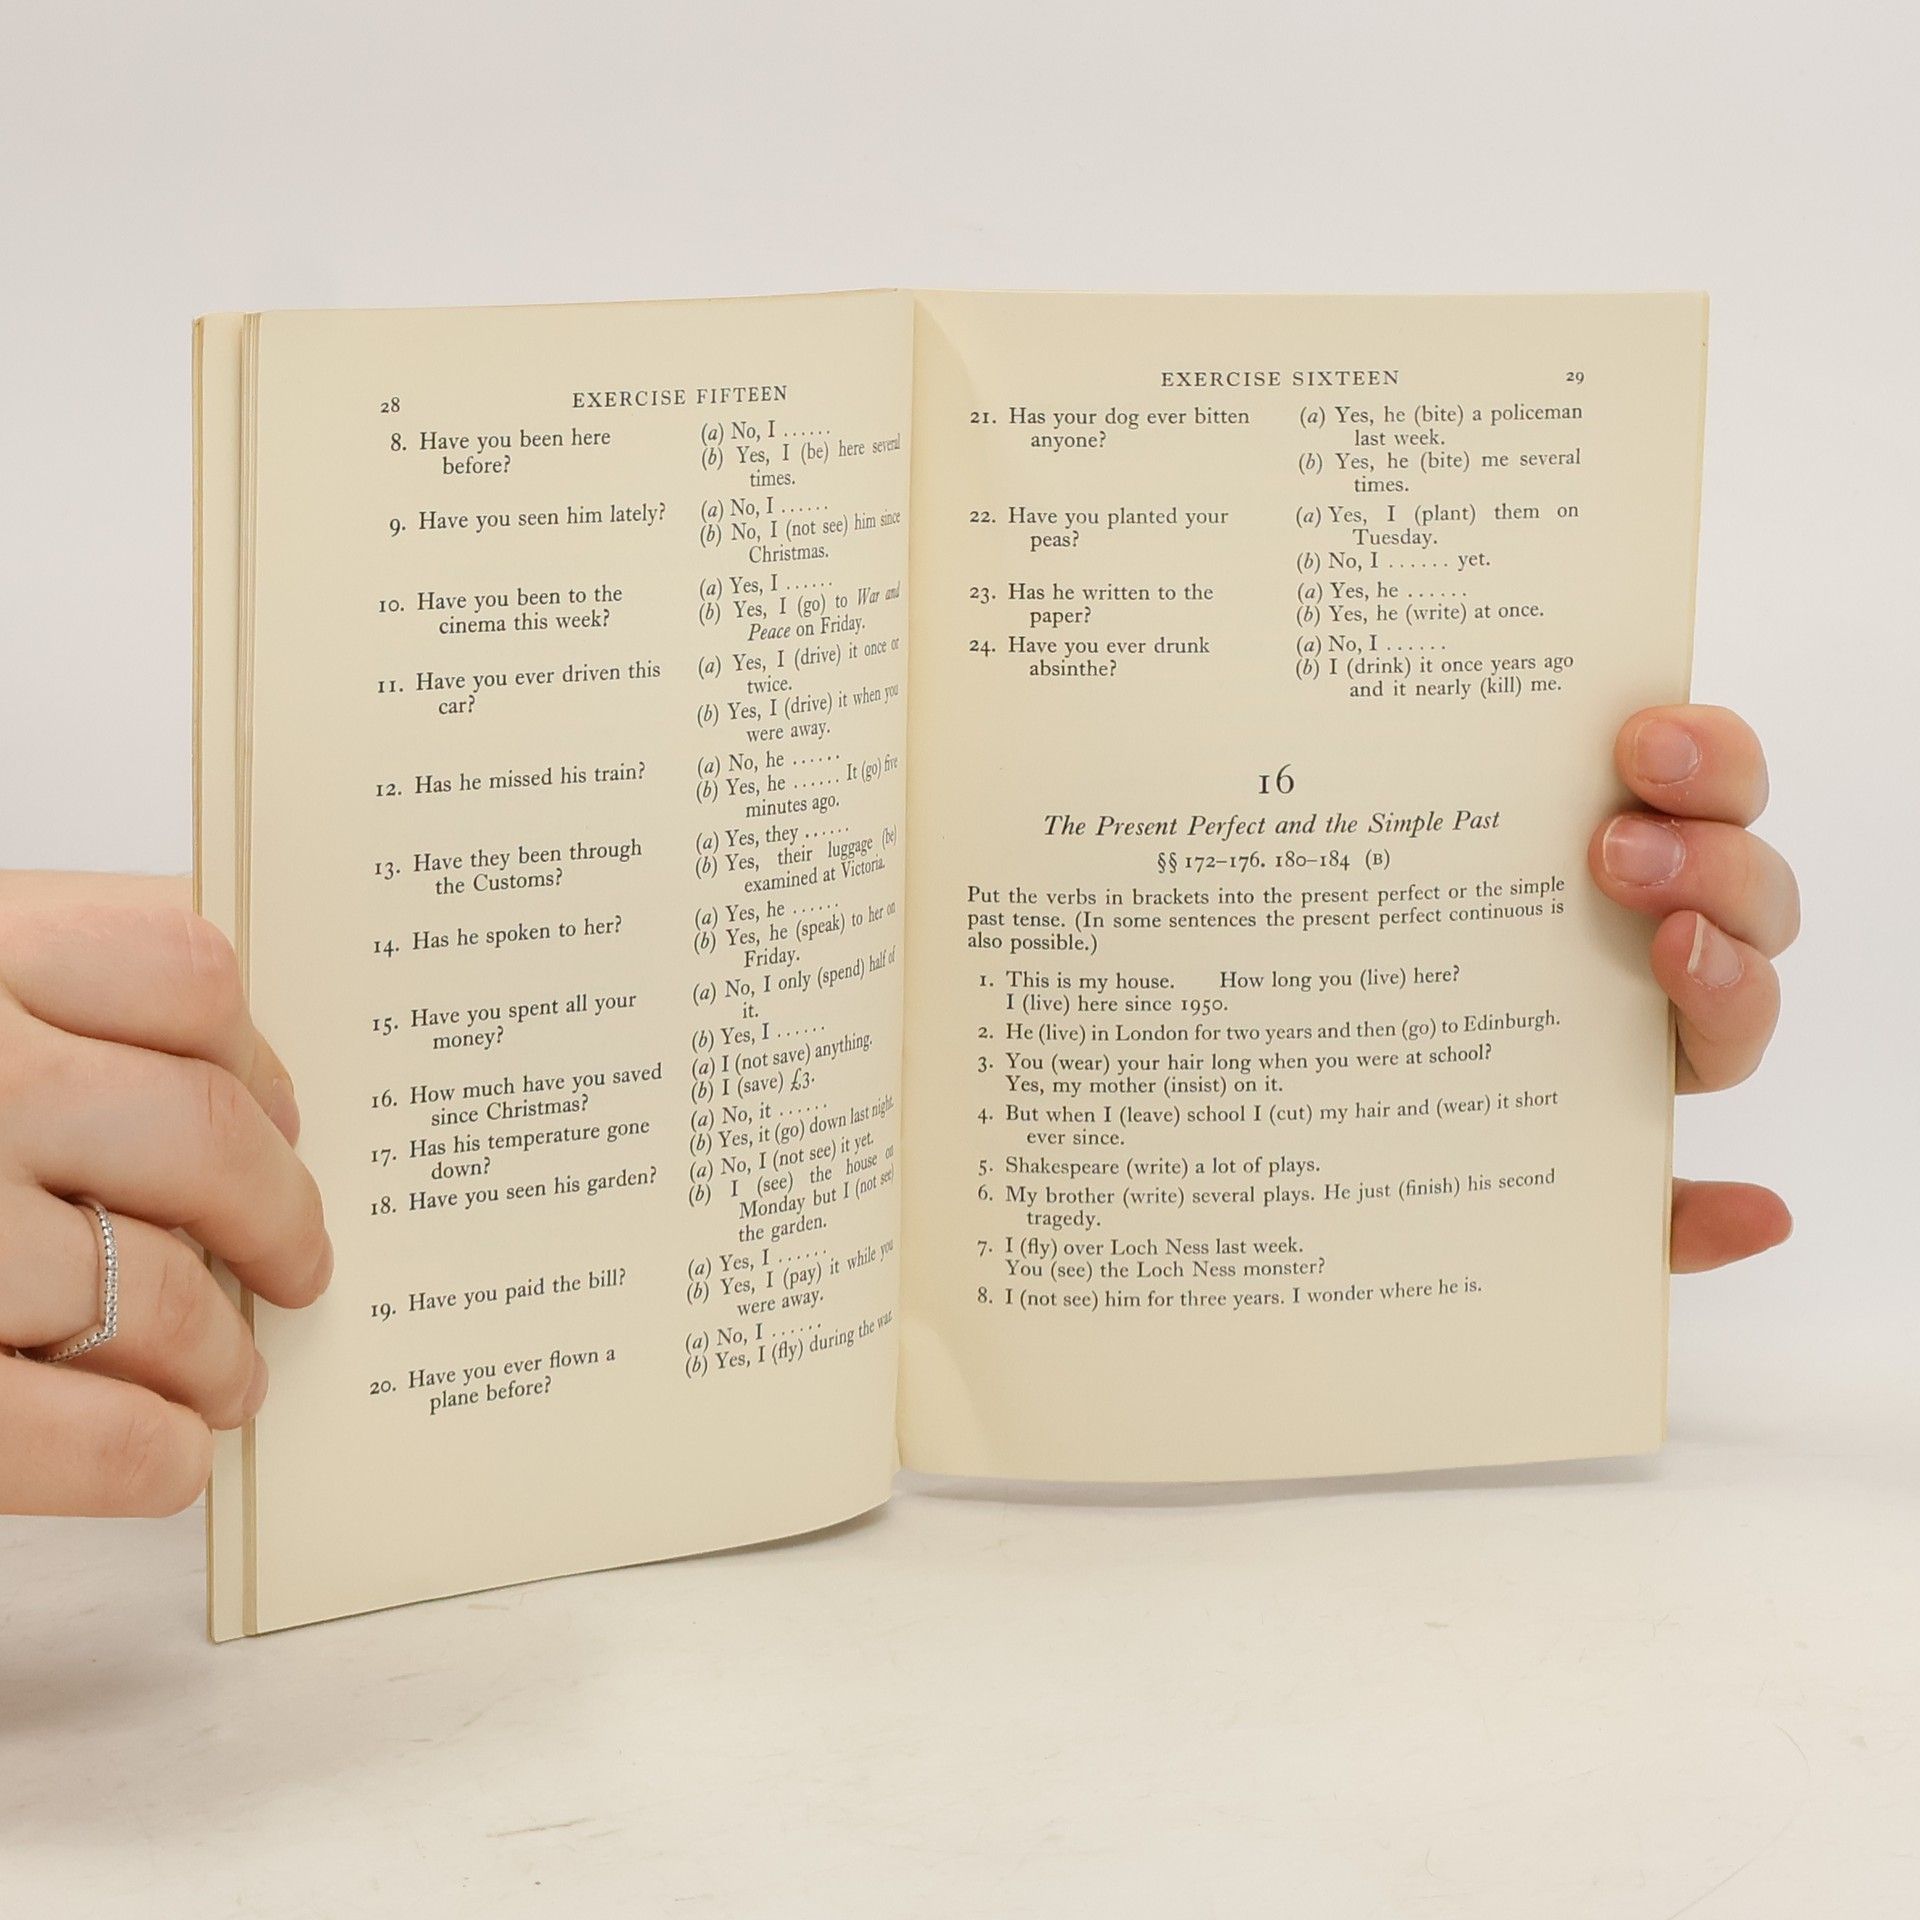 28 EXERCISE FIFTEEN
8. Have you been here
before?
(a) No, I ......
(b) Yes, I (be) here several
times.
9. Have you seen him lately?
(a) No, I ......
(b) No, I (not see) him since
Christmas.
10. Have you been to the
cinema this week?
(a) Yes, I ......
(b) Yes, I (go) to War and
Peace on Friday.
11. Have you ever driven this
car?
(a) Yes, I (drive) it once or
twice.
(b) Yes, I (drive) it when you
were away.
12. Has he missed his train?
(a) No, he ......
(b) Yes, he ...... It (go) five
minutes ago.
13. Have they been through
the Customs?
(a) Yes, they ......
(b) Yes, their luggage (be)
examined at Victoria.
14. Has he spoken to her?
(a) Yes, he ......
(b) Yes, he (speak) to her on
Friday.
15. Have you spent all your
money?
(a) No, I only (spend) half of
it.
(b) Yes, I ......
16. How much have you saved
since Christmas?
(a) I (not save) anything.
(b) I (save) £3.
17. Has his temperature gone
down?
(a) No, it ......
(b) Yes, it (go) down last night.
18. Have you seen his garden?
(a) No, I (not see) it yet.
(b) I (see) the house on
Monday but I (not see)
the garden.
19. Have you paid the bill?
(a) Yes, I ......
(b) Yes, I (pay) it while you
were away.
20. Have you ever flown a
plane before?
(a) No, I ......
(b) Yes, I (fly) during the war.
EXERCISE SIXTEEN 29
21. Has your dog ever bitten
anyone?
(a) Yes, he (bite) a policeman
last week.
(b) Yes, he (bite) me several
times.
22. Have you planted your
peas?
(a) Yes, I (plant) them on
Tuesday.
(b) No, I ...... yet.
23. Has he written to the
paper?
(a) Yes, he ......
(b) Yes, he (write) at once.
24. Have you ever drunk
absinthe?
(a) No, I ......
(b) I (drink) it once years ago
and it nearly (kill) me.
16
The Present Perfect and the Simple Past
§§ 172–176. 180–184 (B)
Put the verbs in brackets into the present perfect or the simple
past tense. (In some sentences the present perfect continuous is
also possible.)
1. This is my house. How long you (live) here?
I (live) here since 1950.
2. He (live) in London for two years and then (go) to Edinburgh.
3. You (wear) your hair long when you were at school?
Yes, my mother (insist) on it.
4. But when I (leave) school I (cut) my hair and (wear) it short
ever since.
5. Shakespeare (write) a lot of plays.
6. My brother (write) several plays. He just (finish) his second
tragedy.
7. I (fly) over Loch Ness last week.
You (see) the Loch Ness monster?
8. I (not see) him for three years. I wonder where he is.